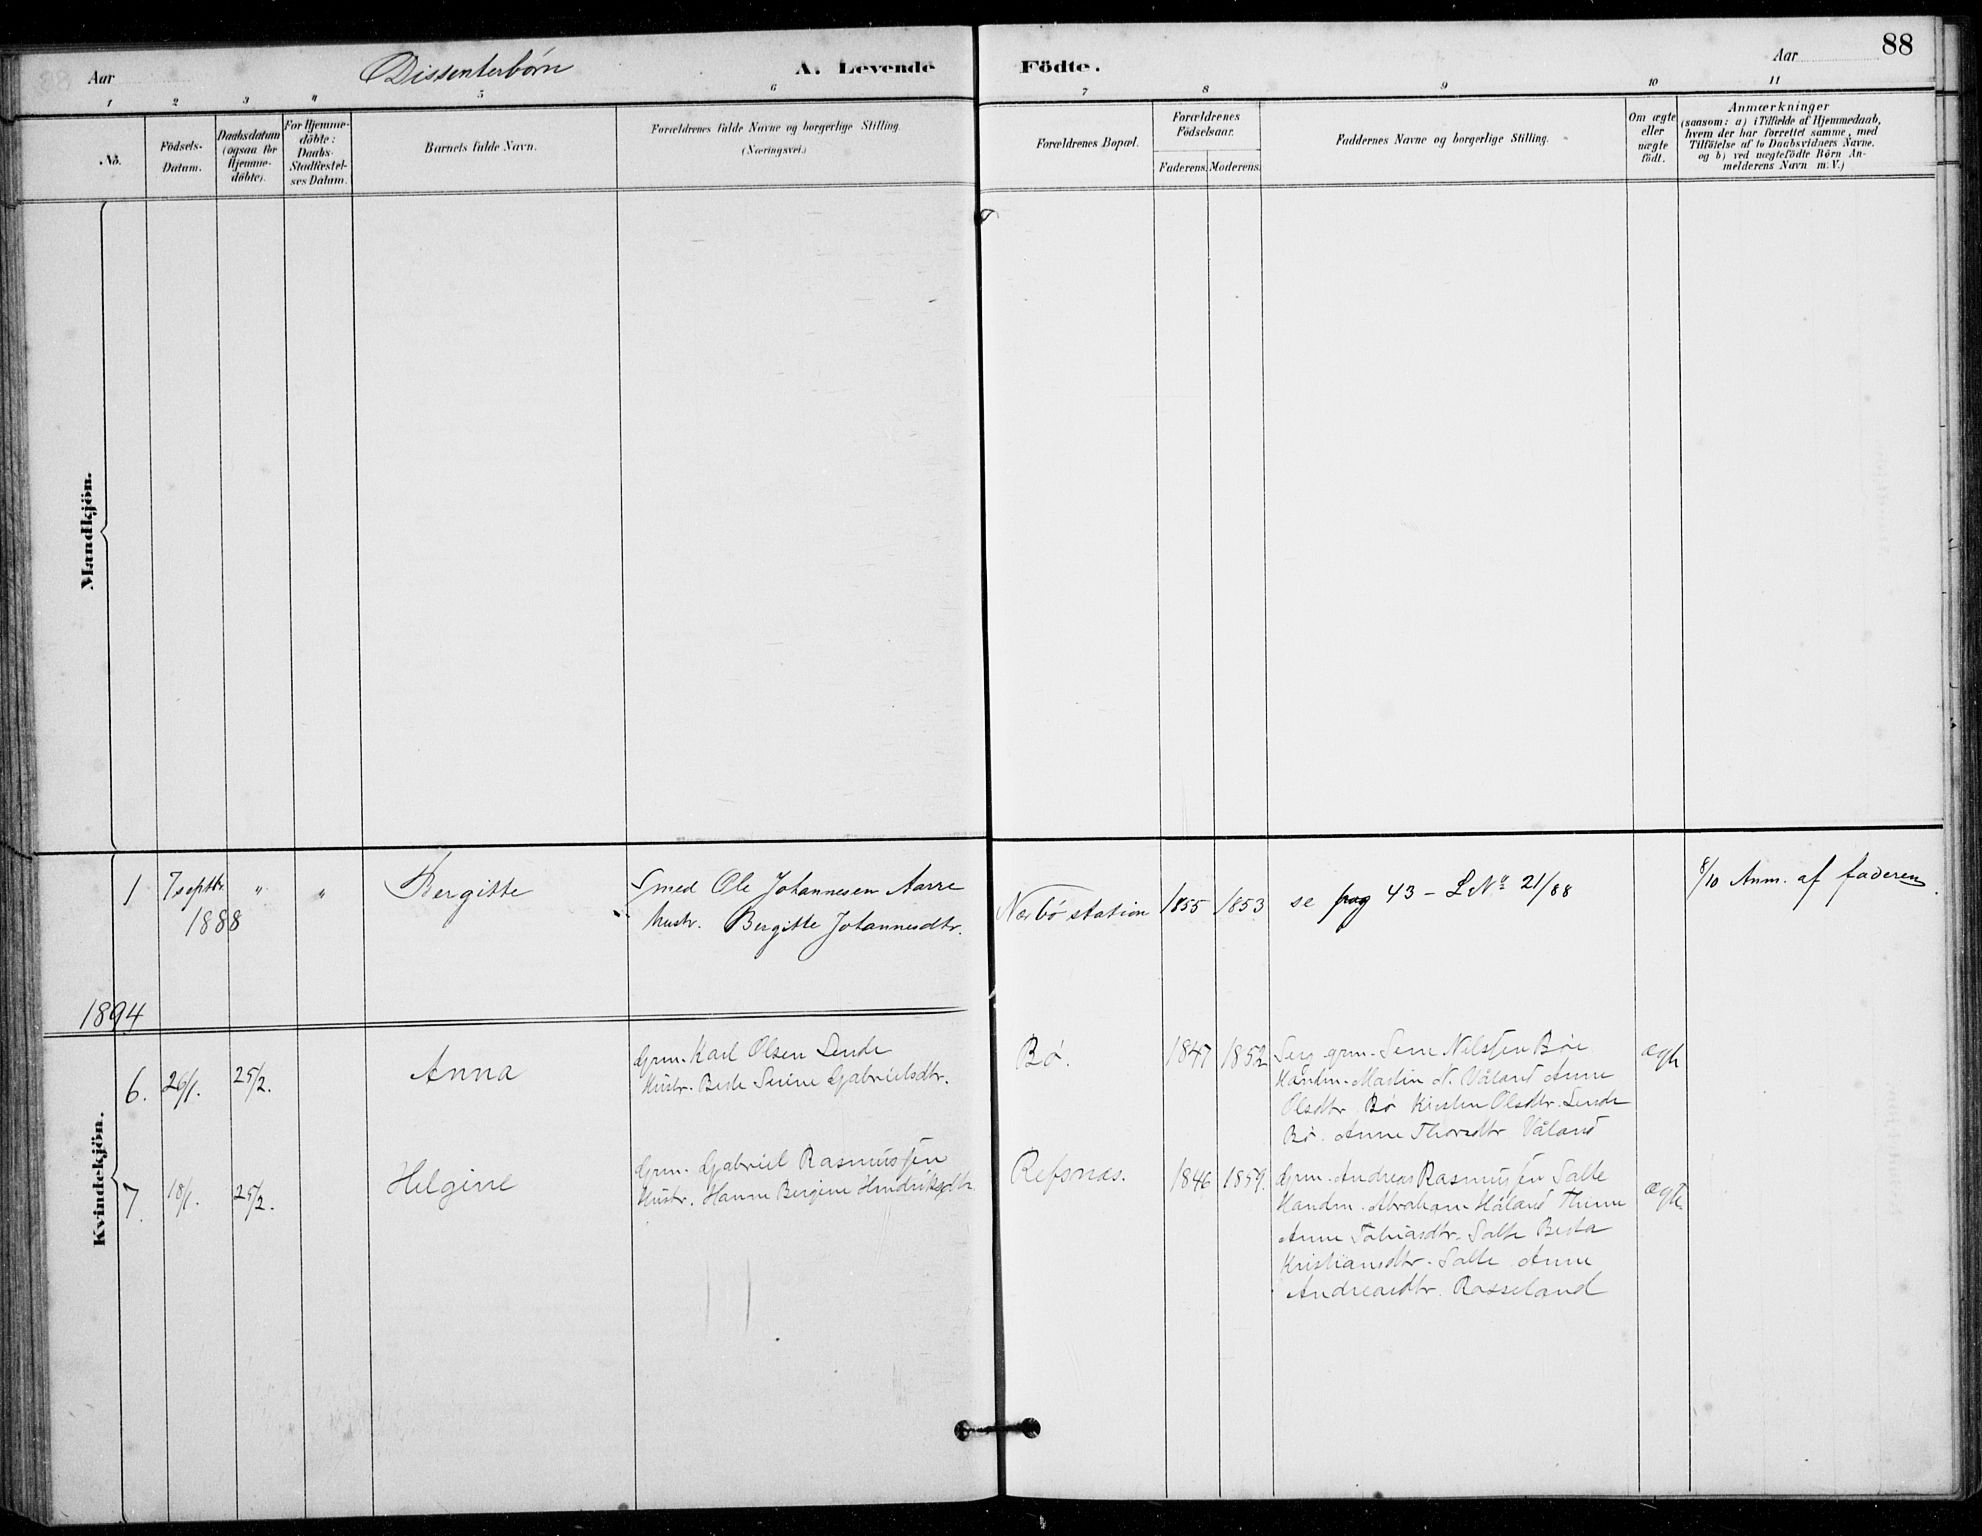 88
Aar
Dissenterbørn
A. Levende Födte.
Aar
1 2 3 " 5 6 7 8 9 10 11
No.
Födsels-
Datum.
Daabsdatum
(ogsaa for
Hjemme-
döbte).
For Hjemme-
döbte:
Daabs-
Stadfæstel-
ses Datum.
Barnets fulde Navn.
Forældrenes fulde Navne og borgerlige Stilling.
(Næringsvei.)
Forældrenes Bopæl.
Forældrenes
Födselsaar.
Faderens. Moderens.
Faddernes Navne og borgerlige Stilling.
Om ægte
eller
uægte
födt.
Anmærkninger
(saasom: a) i Tilfælde af Hjemmedaab,
hvem der har forrettet samme, med
Tilföielse af to Daabsvidners Navne,
og b) ved uægtefödte Börn An-
melderens Navn m. V.)
Mandkjön.
1 7 septbr. " " Bergitte
1888
Smed Ole Johannesen Aarre
Hustr. Bergitte Johannesdtr.
Nærbø station 1855 1853 se pag 43 – L No 21/88
8/10 Anm. af faderen.
1894
Kvindekjön.
6. 26/1. 25/2. Anna
Grm. Karl Olsen Lende
Hustr. Serine Gabrielsdtr.
Bø. 1847 1852
grm. Nilssen Bøe
Handm. Martin N. Våland Anne
Olsdtr. Bø Kirsten Olsdtr. Lende
Bø. Anne Thorsdtr. Våland
ægte
7. 18/1. 25/2. Helgine
Grm. Gabriel Rasmussen
Hustr. Hanne Bergine Hendriksdtr.
Refsnæs. 1846 1859.
Grm. Andreas Rasmussen Salte
Handm. Abraham Håland Thime
Anne Tobiasdtr. Salte Berta
Kristiansdtr. Salte Anne
Andreasdtr. Rosseland
ægte.